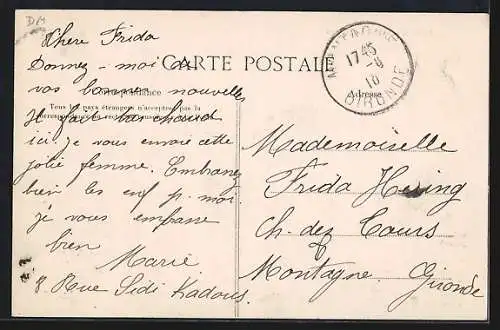 DM
Chere Frida
CARTE POSTALE
Donnez-moi de
vos bonnes nouvelles
Correspondance
Tous les pays étrangers n'acceptent pas la
Il fait bas chaud
ici. je vous envoie cette
jolie femme. Embrassez
bien les enf p. moi.
je vous embrasse
bien
Marie
8 Rue Sidi Kadous.
17 45
-9
10
GIRONDE
Adresse
Mademoiselle
Frida Hering
Ch. dez Cours
Montagne. Gironde